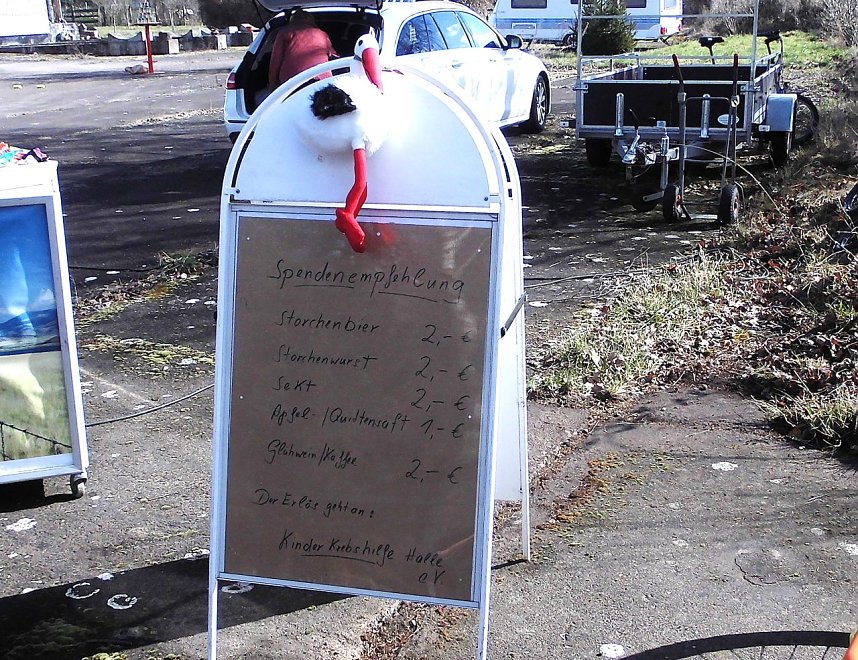 Spendenempfehlung
Storchenbier 2,- €
Storchenwurst 2,- €
Sekt 2,- €
Apfel-/Quittensaft 1,- €
Glühwein/Kaffee 2,- €
Der Erlös geht an:
Kinder Krebshilfe Halle
e.V.